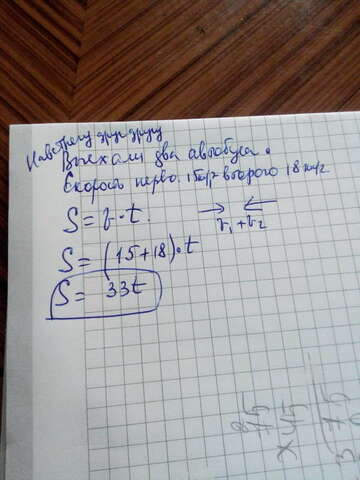 Навстречу друг другу
Выехали два автобуса.
Скорость перво 15км/г второго 18км/г
S = v · t.
v₁ + v₂
S = (15+18) · t
S = 33t
75
x 45